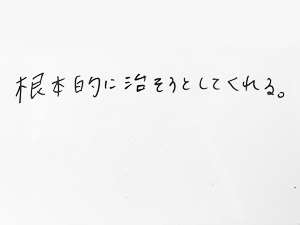 根本的に治そうとしてくれる。